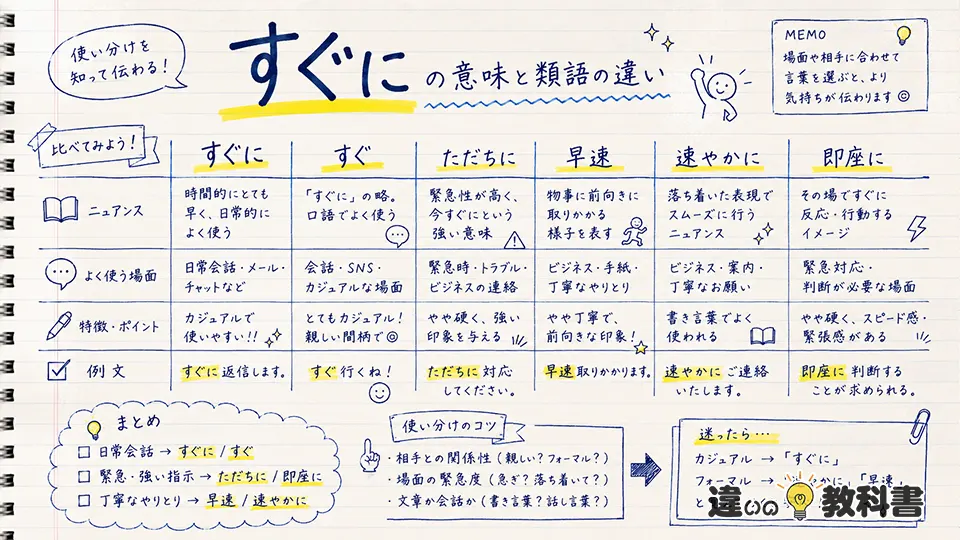 使い分けを
知って伝わる！
すぐに の意味と類語の違い
MEMO
場面や相手に合わせて
言葉を選ぶと、より
気持ちが伝わります
比べてみよう！
すぐに
すぐ
ただちに
早速
速やかに
即座に
ニュアンス
時間的にとても
早く、日常的に
よく使う
「すぐに」の略。
口語でよく使う
緊急性が高く、
今すぐにという
強い意味
物事に前向きに
取りかかる
様子を表す
落ち着いた表現で
スムーズに行う
ニュアンス
その場ですぐに
反応・行動する
イメージ
よく使う場面
日常会話・メール・
チャットなど
会話・SNS・
カジュアルな場面
緊急時・トラブル・
ビジネスの連絡
ビジネス・手紙・
丁寧なやりとり
ビジネス・案内・
丁寧なお願い
緊急対応・
判断が必要な場面
特徴・ポイント
カジュアルで
使いやすい!!
とてもカジュアル！
親しい間柄で◎
やや硬く、強い
印象を与える
やや丁寧で、
前向きな印象！
書き言葉でよく
使われる
やや硬く、スピード感・
緊張感がある
例文
すぐに返信します。
すぐ行くね！
ただちに対応
してください。
早速取りかかります。
速やかにご連絡
いたします。
即座に判断する
ことが求められる。
まとめ
日常会話 → すぐに / すぐ
緊急・強い指示 → ただちに / 即座に
丁寧なやりとり → 早速 / 速やかに
使い分けのコツ
・相手との関係性（親しい？フォーマル？）
・場面の緊急度（急ぎ？落ち着いて？）
・文章か会話か（書き言葉？話し言葉？）
迷ったら…
カジュアル → 「すぐに」
フォーマル → 「早速」
と
違いの教科書